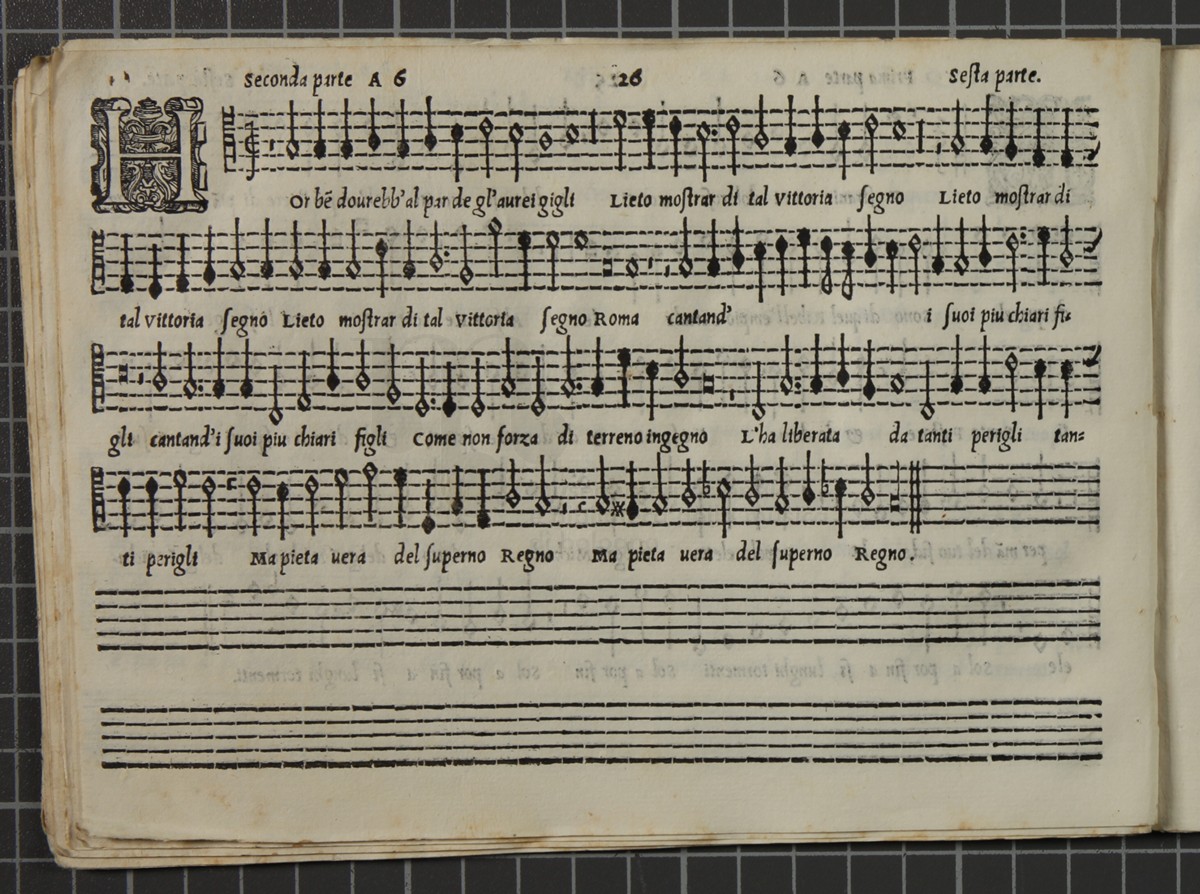 Seconda parte A 6 26 Sesta parte.
HOr bē dourebb'al par de gl'aurei gigli Lieto mostrar di tal vittoria segno Lieto mostrar di
tal vittoria segno Lieto mostrar di tal vittoria segno Roma cantand' i suoi piu chiari fi-
gli cantand'i suoi piu chiari figli Come non forza di terreno ingegno L'ha liberata da tanti perigli tan-
ti perigli Ma pieta uera del superno Regno Ma pieta uera del superno Regno.